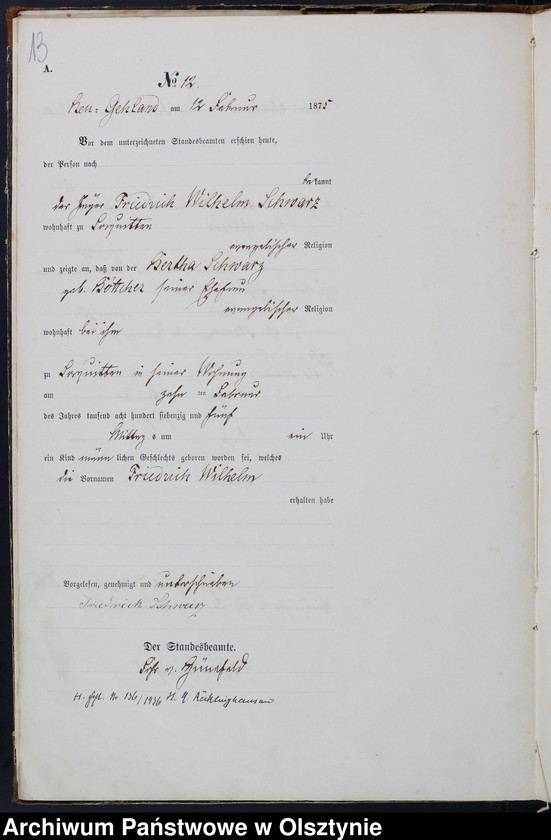 13
A.
No 12.
Neu-Gehland am 12 Februar 1875
Vor dem unterzeichneten Standesbeamten erschien heute,
der Person nach
bekannt
der Friedrich Wilhelm Schwarz
wohnhaft zu Sorquitten
evangelischer Religion
und zeigte an, daß von der Bertha Schwarz
geb. Böttcher seiner Ehefrau
evangelischer Religion
wohnhaft bei ihm
zu Sorquitten in seiner Wohnung
am zehn ten Februar
des Jahres tausend acht hundert siebenzig und fünf
Mittags um ein Uhr
ein Kind männlichen Geschlechts geboren worden sei, welches
die Vornamen Friedrich Wilhelm
erhalten habe
Vorgelesen, genehmigt und unterschrieben
Friedrich Schwarz
Der Standesbeamte.
v.
Nr. 136/1936 Recklinghausen
Archiwum Państwowe w Olsztynie